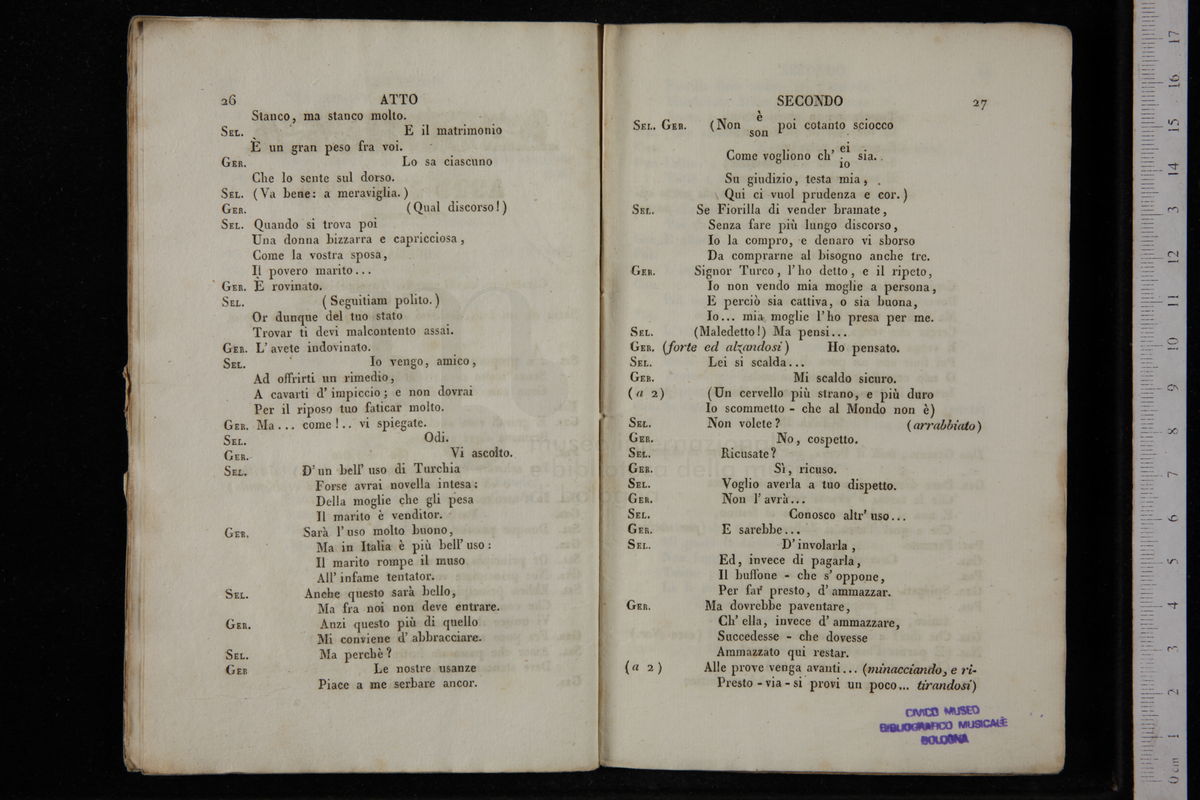 26 ATTO
Stanco, ma stanco molto.
SEL. E il matrimonio
È un gran peso fra voi.
GER. Lo sa ciascuno
Che lo sente sul dorso.
SEL. (Va bene: a meraviglia.)
GER. (Qual discorso!)
SEL. Quando si trova poi
Una donna bizzarra e capricciosa,
Come la vostra sposa,
Il povero marito...
GER. È rovinato.
SEL. (Seguitiam polito.)
Or dunque del tuo stato
Trovar ti devi malcontento assai.
GER. L'avete indovinato.
SEL. Io vengo, amico,
Ad offrirti un rimedio,
A cavarti d'impiccio; e non dovrai
Per il riposo tuo faticar molto.
GER. Ma... come!.. vi spiegate.
SEL. Odi.
GER. Vi ascolto.
SEL. D'un bell'uso di Turchia
Forse avrai novella intesa:
Della moglie che gli pesa
Il marito è venditor.
GER. Sarà l'uso molto buono,
Ma in Italia è più bell'uso:
Il marito rompe il muso
All'infame tentator.
SEL. Anche questo sarà bello,
Ma fra noi non deve entrare.
GER. Anzi questo più di quello
Mi conviene d'abbracciare.
SEL. Ma perchè?
GER Le nostre usanze
Piace a me serbare ancor.
SECONDO 27
SEL. GER. (Non è poi cotanto sciocco
son
Come vogliono ch' ei sia.
io
Su giudizio, testa mia,
Qui ci vuol prudenza e cor.)
SEL. Se Fiorilla di vender bramate,
Senza fare più lungo discorso,
Io la compro, e denaro vi sborso
Da comprarne al bisogno anche tre.
GER. Signor Turco, l'ho detto, e il ripeto,
Io non vendo mia moglie a persona,
E perciò sia cattiva, o sia buona,
Io... mia moglie l'ho presa per me.
SEL. (Maledetto!) Ma pensi...
GER. (forte ed alzandosi) Ho pensato.
SEL. Lei si scalda...
GER. Mi scaldo sicuro.
(a 2) (Un cervello più strano, e più duro
Io scommetto - che al Mondo non è)
SEL. Non volete? (arrabbiato)
GER. No, cospetto.
SEL. Ricusate?
GER. Sì, ricuso.
SEL. Voglio averla a tuo dispetto.
GER. Non l'avrà...
SEL. Conosco altr'uso...
GER. E sarebbe...
SEL. D'involarla,
Ed, invece di pagarla,
Il buffone - che s'oppone,
Per far presto, d'ammazzar.
GER. Ma dovrebbe paventare,
Ch'ella, invece d'ammazzare,
Succedesse - che dovesse
Ammazzato qui restar.
(a 2) Alle prove venga avanti... (minacciando, e ri-
Presto - via - si provi un poco... tirandosi)
CIVICO MUSEO
BIBLIOGRAFICO MUSICALE
BOLOGNA
0 cm 1 2 3 4 5 6 7 8 9 10 11 12 13 14 15 16 17